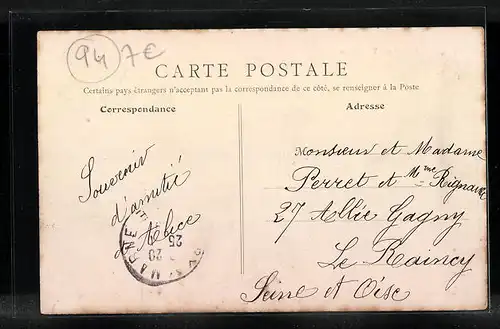 94 7€
CARTE POSTALE
Certains pays étrangers n'acceptant pas la correspondance de ce côté, se renseigner à la Poste
Correspondance
Adresse
Souvenir
d'amitié
Alice
MARNE
25
20
Monsieur et Madame
Perret et Mme
27 Allée Gagny
Le Raincy
Seine et Oise